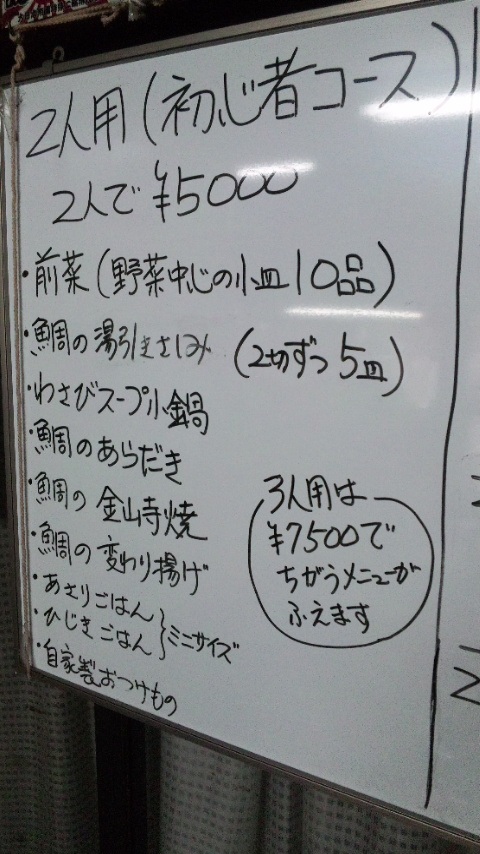 2人用(初心者コース)
2人で ¥5000
・前菜(野菜中心の小皿10品)
・鯛の湯引きさしみ (2切ずつ5皿)
・わさびスープ小鍋
・鯛のあらだき
・鯛の金山寺焼
・鯛の変わり揚げ
・あさりごはん
・ひじきごはん }ミニサイズ
・自家製おつけもの
3人用は
¥7500で
ちがうメニューが
ふえます